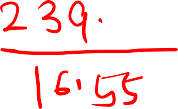 239.
16.55